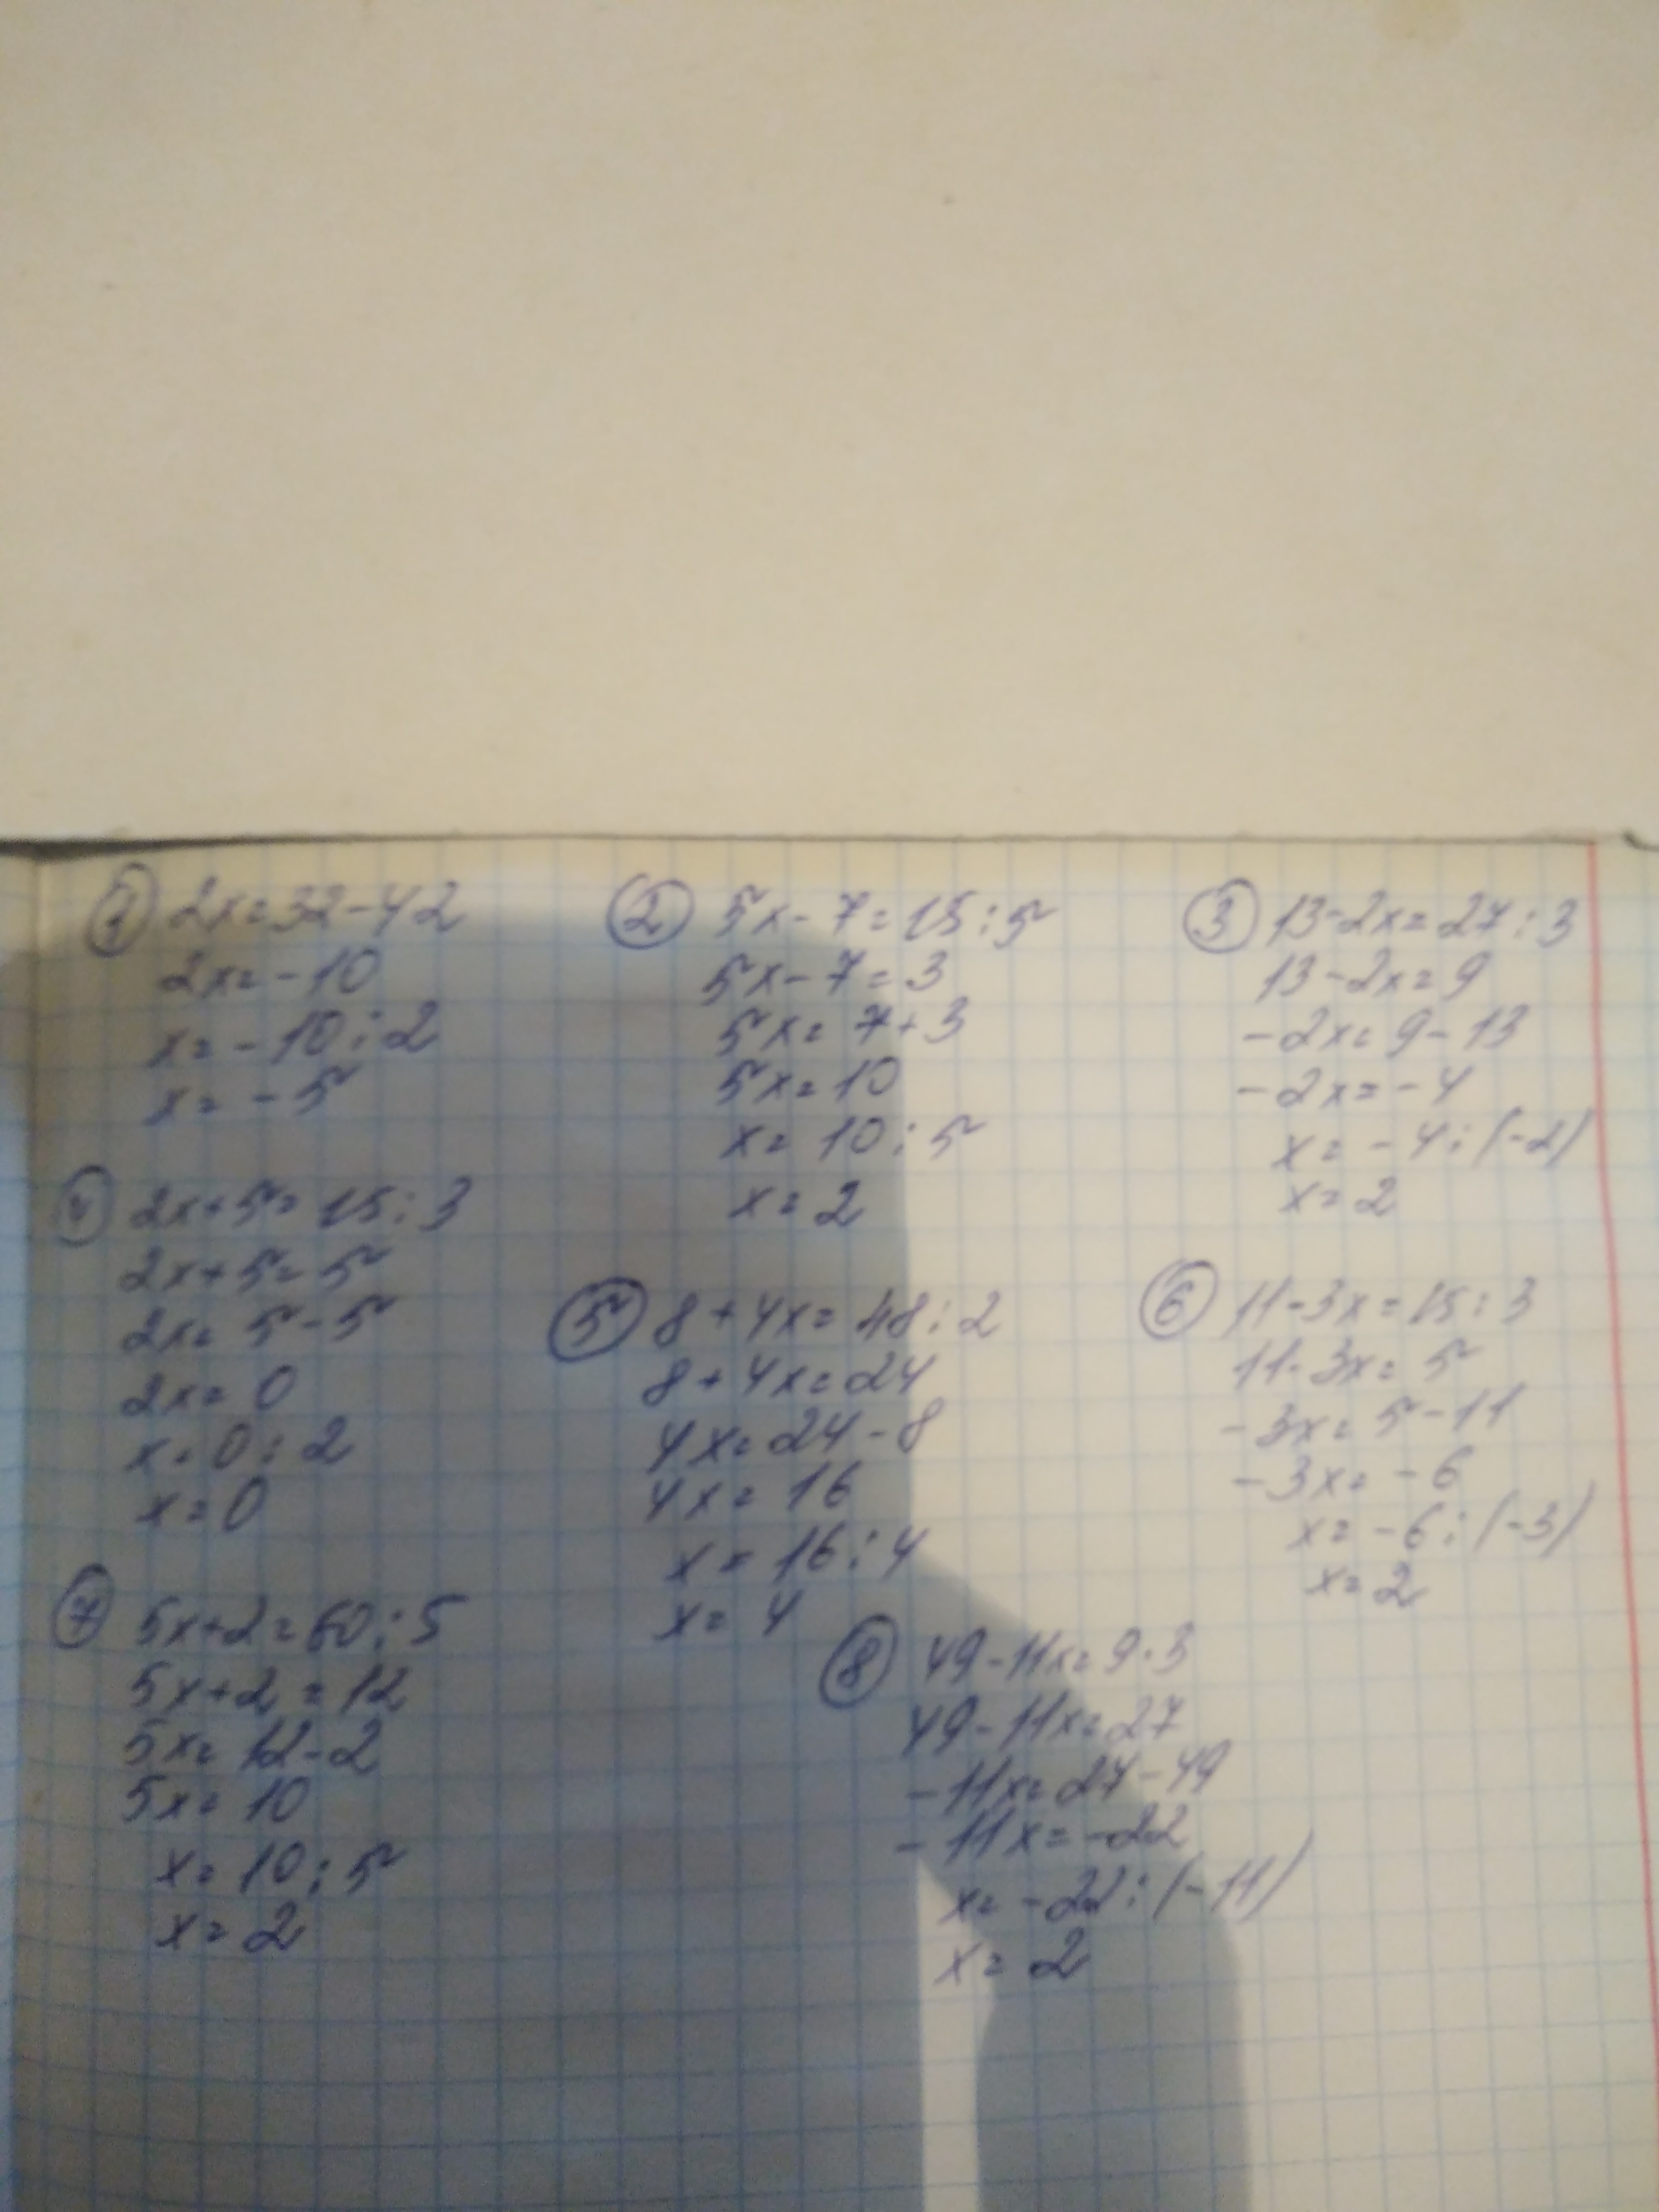 ① 2x=32-42
2x=-10
x=-10:2
x=-5
② 5x-7=15:5
5x-7=3
5x=7+3
5x=10
x=10:5
x=2
③ 13-2x=27:3
13-2x=9
-2x=9-13
-2x=-4
x=-4:(-2)
x=2
④ 2x+5=15:3
2x+5=5
2x=5-5
2x=0
x=0:2
x=0
⑤ 8+4x=48:2
8+4x=24
4x=24-8
4x=16
x=16:4
x=4
⑥ 11-3x=15:3
11-3x=5
-3x=5-11
-3x=-6
x=-6:(-3)
x=2
⑦ 5x+2=60:5
5x+2=12
5x=12-2
5x=10
x=10:5
x=2
⑧ 49-11x=9·3
49-11x=27
-11x=27-49
-11x=-22
x=-22:(-11)
x=2